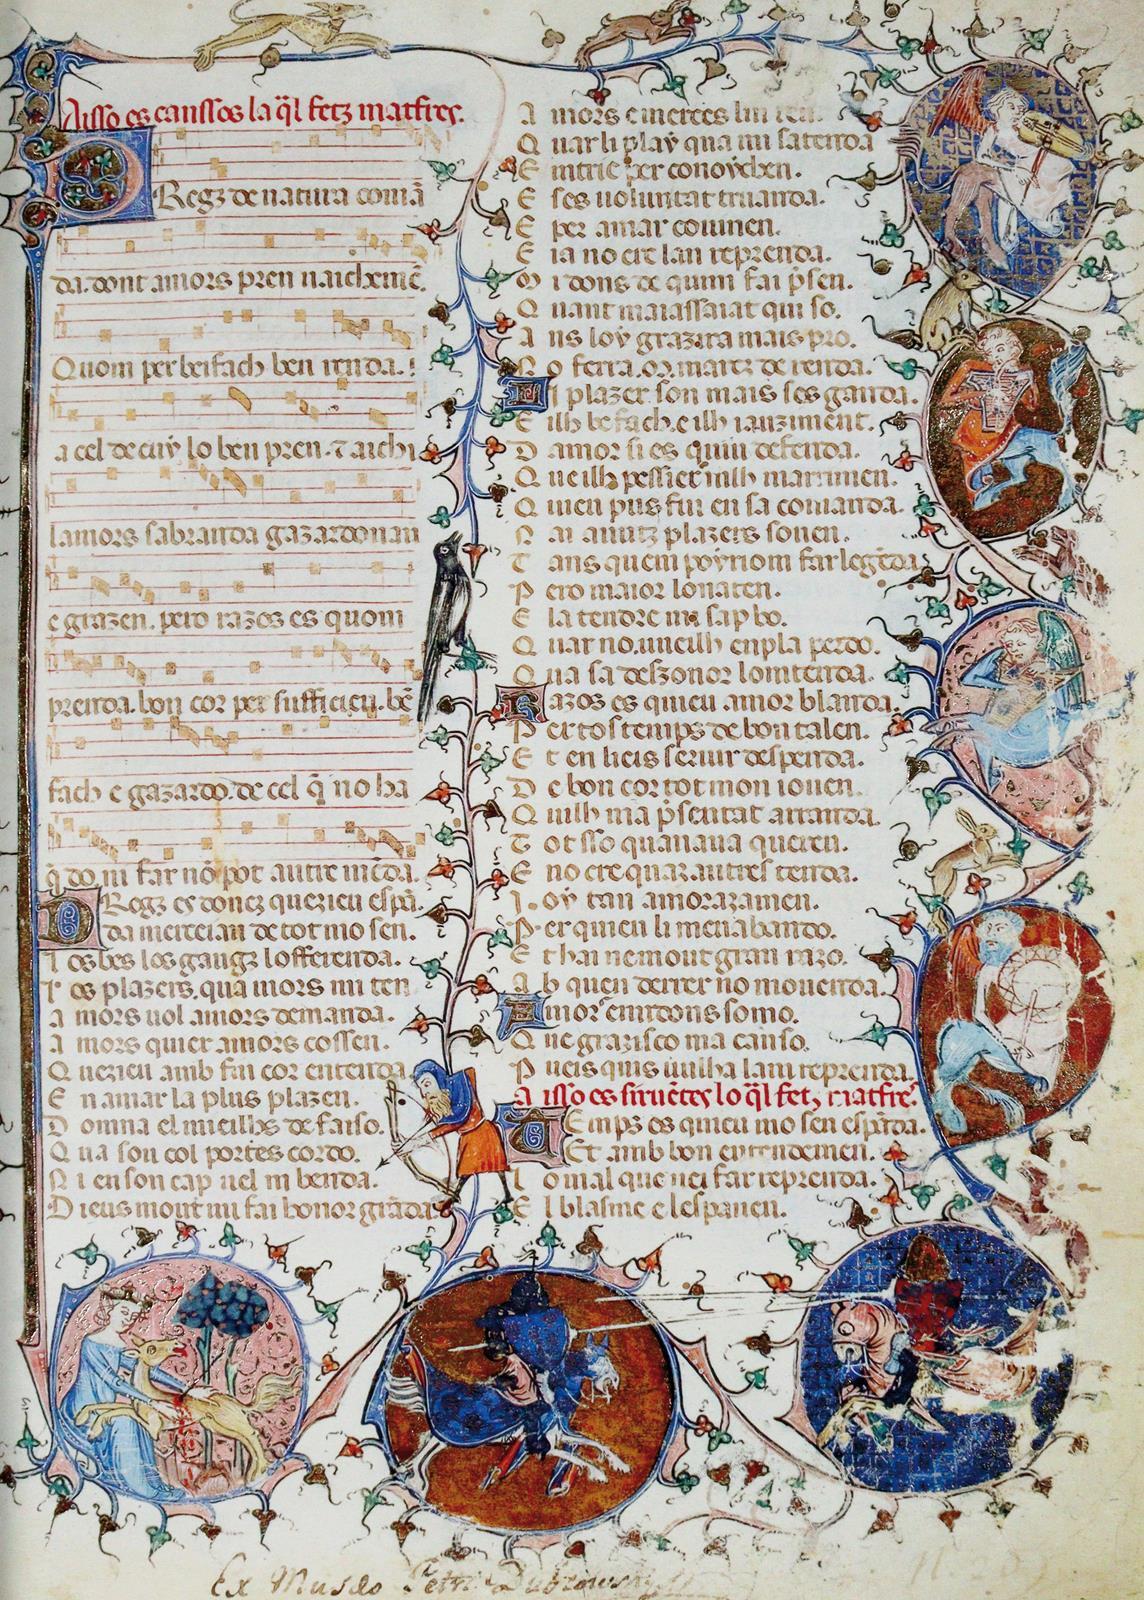 Aisso es canssos la q̄l fetz matfres.
Dregz de natura comā
da. dont amors pren naichemē.
Quom per benfach ben renda.
a cel de cuy lo ben pren. ⁊ aichi
lamors sabranda gazardonan
e grazen. pero razos es quom
prenda. bon cor per sufficien. bē
fach e gazardo. de cel q̄ no ha
q̄ do. ni far nō pot autre mēda.
Dregz es donez quezieu espā
da merceian de tot mo sen.
T os bes los gaugz losferenda.
T os plazers. qua mors mi ten
A mors uol amors demanda.
A mors quier amors cossen.
Q uezieu amb fin cor entenda
E n amar la plus plazen.
D omna el mieilhs de faiso.
Q ua son col portes cordo.
N i en son cap uel ni benda.
D ieus mout mi fai honor grāda
A mors e merces
Q uar li play qua mi satenda
E intrie per conoychen.
E ses uoluntat truanda.
E per amar coumen.
E ia no cre lan reprenda.
M i dons de quim fai p̄sen.
Q uant maiassaiat qui so.
A ns loy grazira mais pro.
N o ferra. M. martz de renda.
E i plazer son mais ses ganda.
E ilh befach. e ilh iauziment.
D amor si es quin defenda.
Q ueilh pessier nilh marrimen.
Q uieu pus fin en sa comanda.
N ai anutz plazers souen.
T ans quem poyriom far legēda
P ero maior lonaten.
E la tendre mi sap bo.
Q uar no. uueilh en pla perdo.
Q ua sa deszonor lomtenda.
Razos es quieu amor blanda.
P er tos temps de bon talen.
E t en lieis seruir despenda.
D e bon cor tot mon iouen.
Q uilh ma p̄sentat atranda.
T ot sso quanaua queren.
E no cre quar autres tenda.
I oy tan amorazamen.
P er quieu li men abando.
E t hai ne mout gran razo.
A b quen derrer no mouenda.
Amor e midons somo.
Q ue grazisco ma canso.
P ueis quis uuilha lam reprenda.
A isso es siruētes lo q̄l fetz matfre.
Temps es quieu mo sen espāda.
Et amb bon entendemen.
L o mal que uei far reprenda.
E l blasme e lespauen.
Ex Museo Petri Dubrowsky